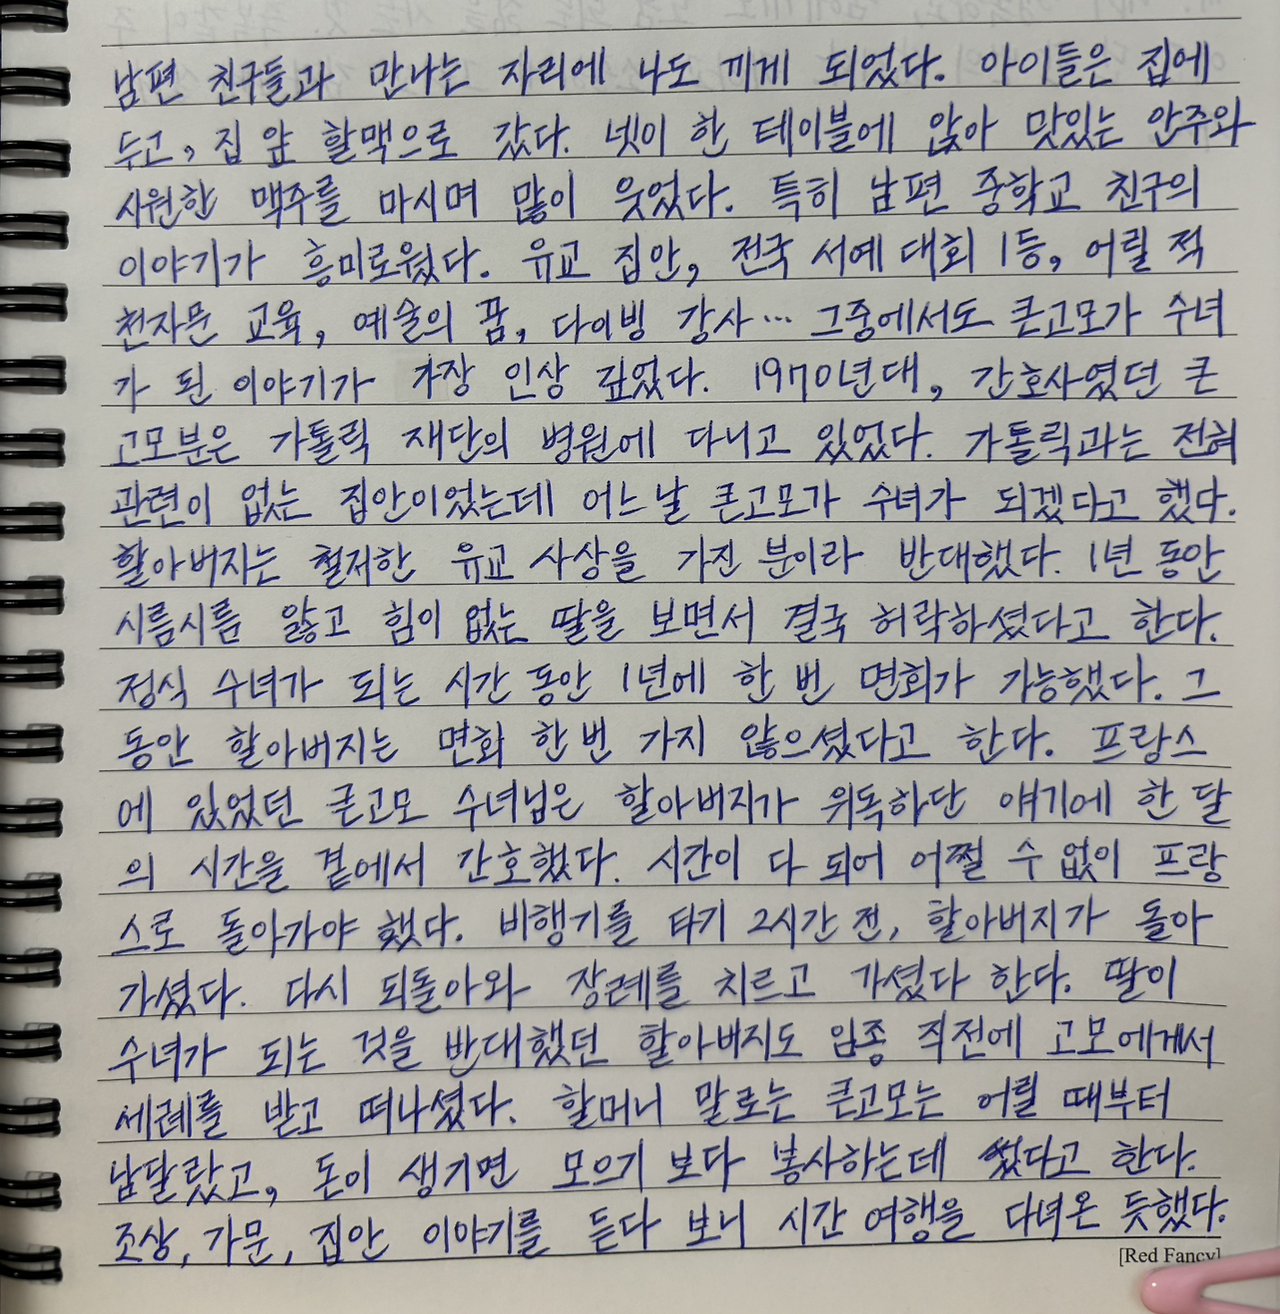 남편 친구들과 만나는 자리에 나도 끼게 되었다. 아이들은 집에
두고, 집 앞 할맥으로 갔다. 넷이 한 테이블에 앉아 맛있는 안주와
시원한 맥주를 마시며 많이 웃었다. 특히 남편 중학교 친구의
이야기가 흥미로웠다. 유교 집안, 전국 서예 대회 1등, 어릴 적
천자문 교육, 예술의 꿈, 다이빙 강사... 그중에서도 큰고모가 수녀
가 된 이야기가 가장 인상 깊었다. 1970년대, 간호사였던 큰
고모분은 가톨릭 재단의 병원에 다니고 있었다. 가톨릭과는 전혀
관련이 없는 집안이었는데 어느날 큰고모가 수녀가 되겠다고 했다.
할아버지는 철저한 유교 사상을 가진 분이라 반대했다. 1년 동안
시름시름 앓고 힘이 없는 딸을 보면서 결국 허락하셨다고 한다.
정식 수녀가 되는 시간 동안 1년에 한 번 면회가 가능했다. 그
동안 할아버지는 면회 한번 가지 않으셨다고 한다. 프랑스
에 있었던 큰고모 수녀님은 할아버지가 위독하단 얘기에 한 달
의 시간을 곁에서 간호했다. 시간이 다 되어 어쩔 수 없이 프랑
스로 돌아가야 했다. 비행기를 타기 2시간 전, 할아버지가 돌아
가셨다. 다시 되돌아와 장례를 치르고 가셨다 한다. 딸이
수녀가 되는 것을 반대했던 할아버지도 임종 직전에 고모에게서
세례를 받고 떠나셨다. 할머니 말로는 큰고모는 어릴 때부터
남달랐고, 돈이 생기면 모으기 보다 봉사하는데 썼다고 한다.
조상, 가문, 집안 이야기를 듣다 보니 시간 여행을 다녀온 듯했다.
[Red Fancy]